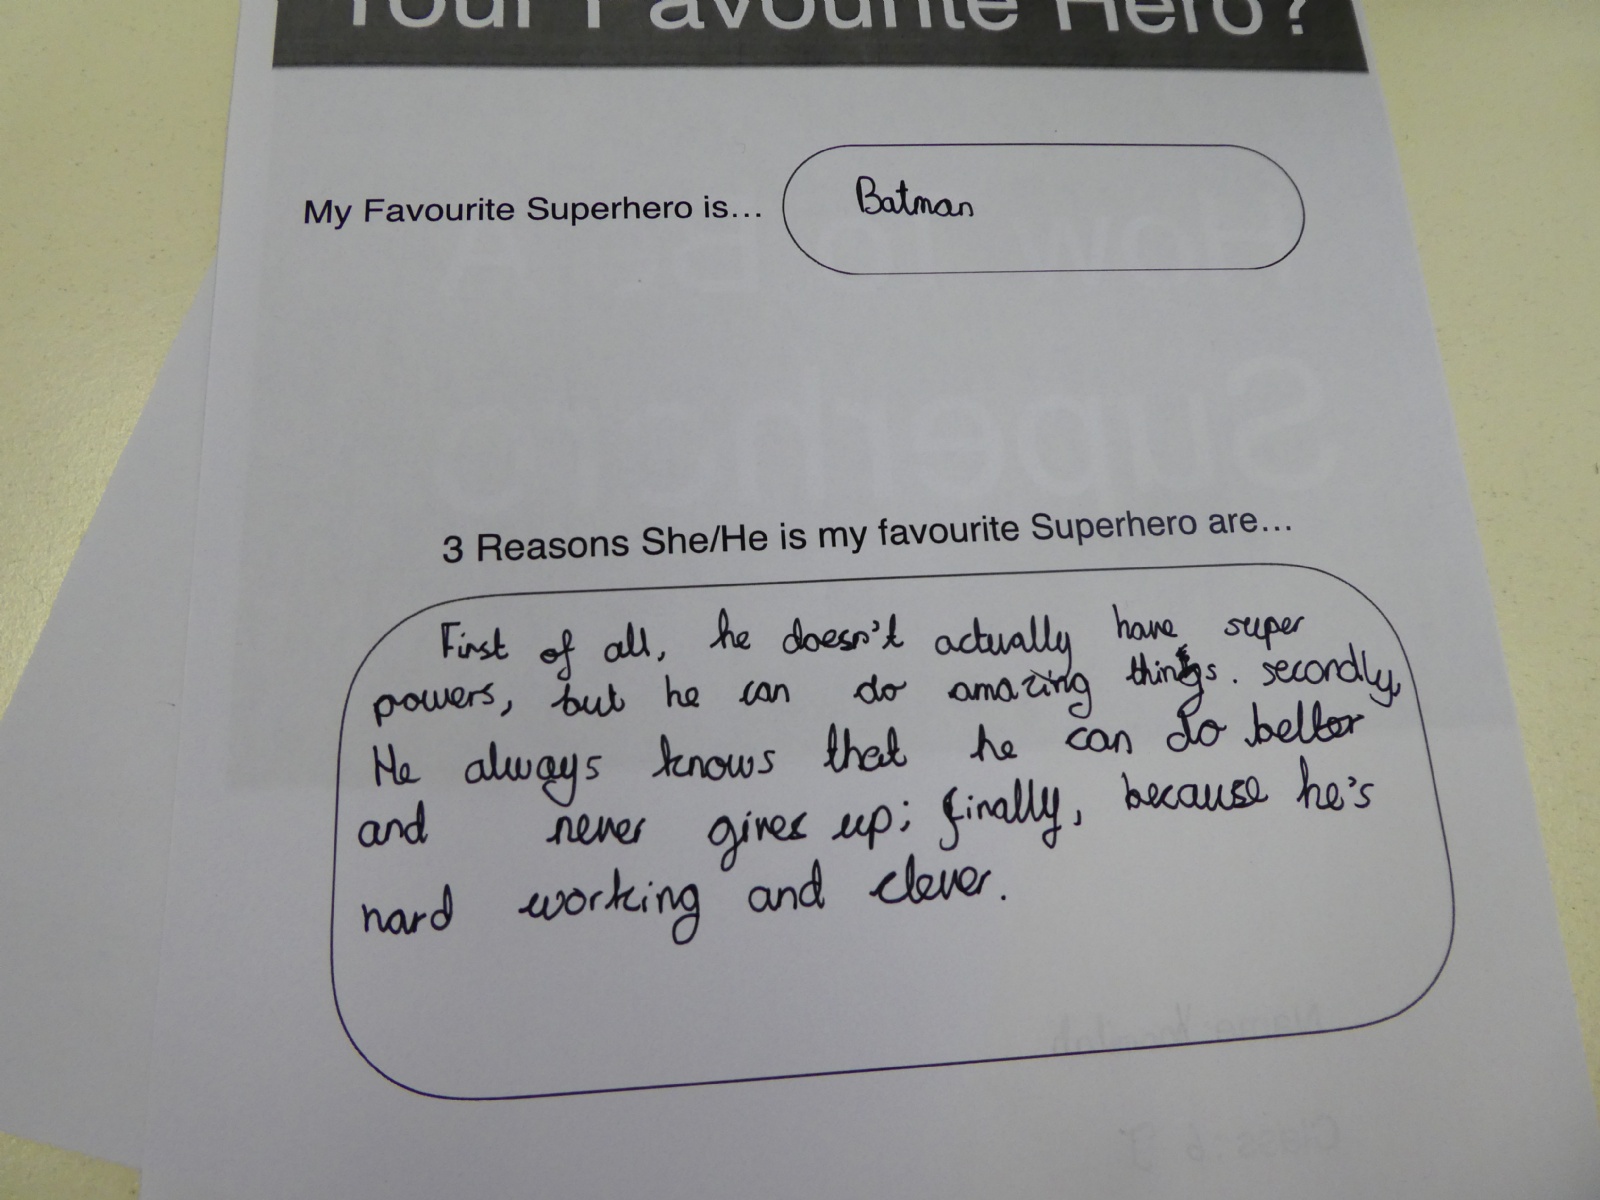 Your Favourite Hero?
My Favourite Superhero is...
Batman
3 Reasons She/He is my favourite Superhero are...
First of all, he doesn't actually have super
powers, but he can do amazing things. secondly,
He always knows that he can do better
and never gives up; finally, because he's
hard working and clever.
How To Be A
Superhero
Name
Class: 6